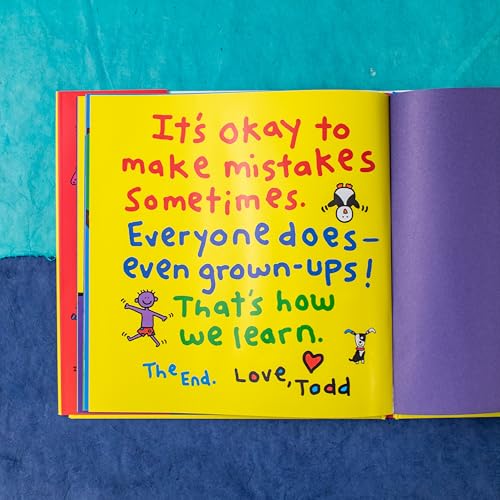 It's okay to
make mistakes
Sometimes.
Everyone does–
even grown-ups!
That's how
we learn.
The End. Love, Todd